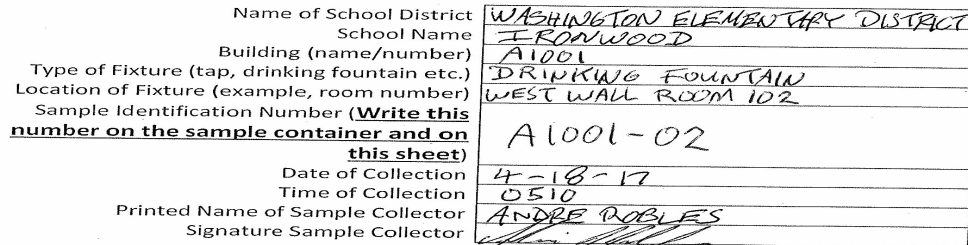 Name of School District WASHINGTON ELEMENTARY DISTRICT
School Name IRONWOOD
Building (name/number) A1001
Type of Fixture (tap, drinking fountain etc.) DRINKING FOUNTAIN
Location of Fixture (example, room number) WEST WALL ROOM 102
Sample Identification Number (Write this
number on the sample container and on
this sheet) A1001-02
Date of Collection 4-18-17
Time of Collection 0510
Printed Name of Sample Collector ANDRE ROBLES
Signature Sample Collector